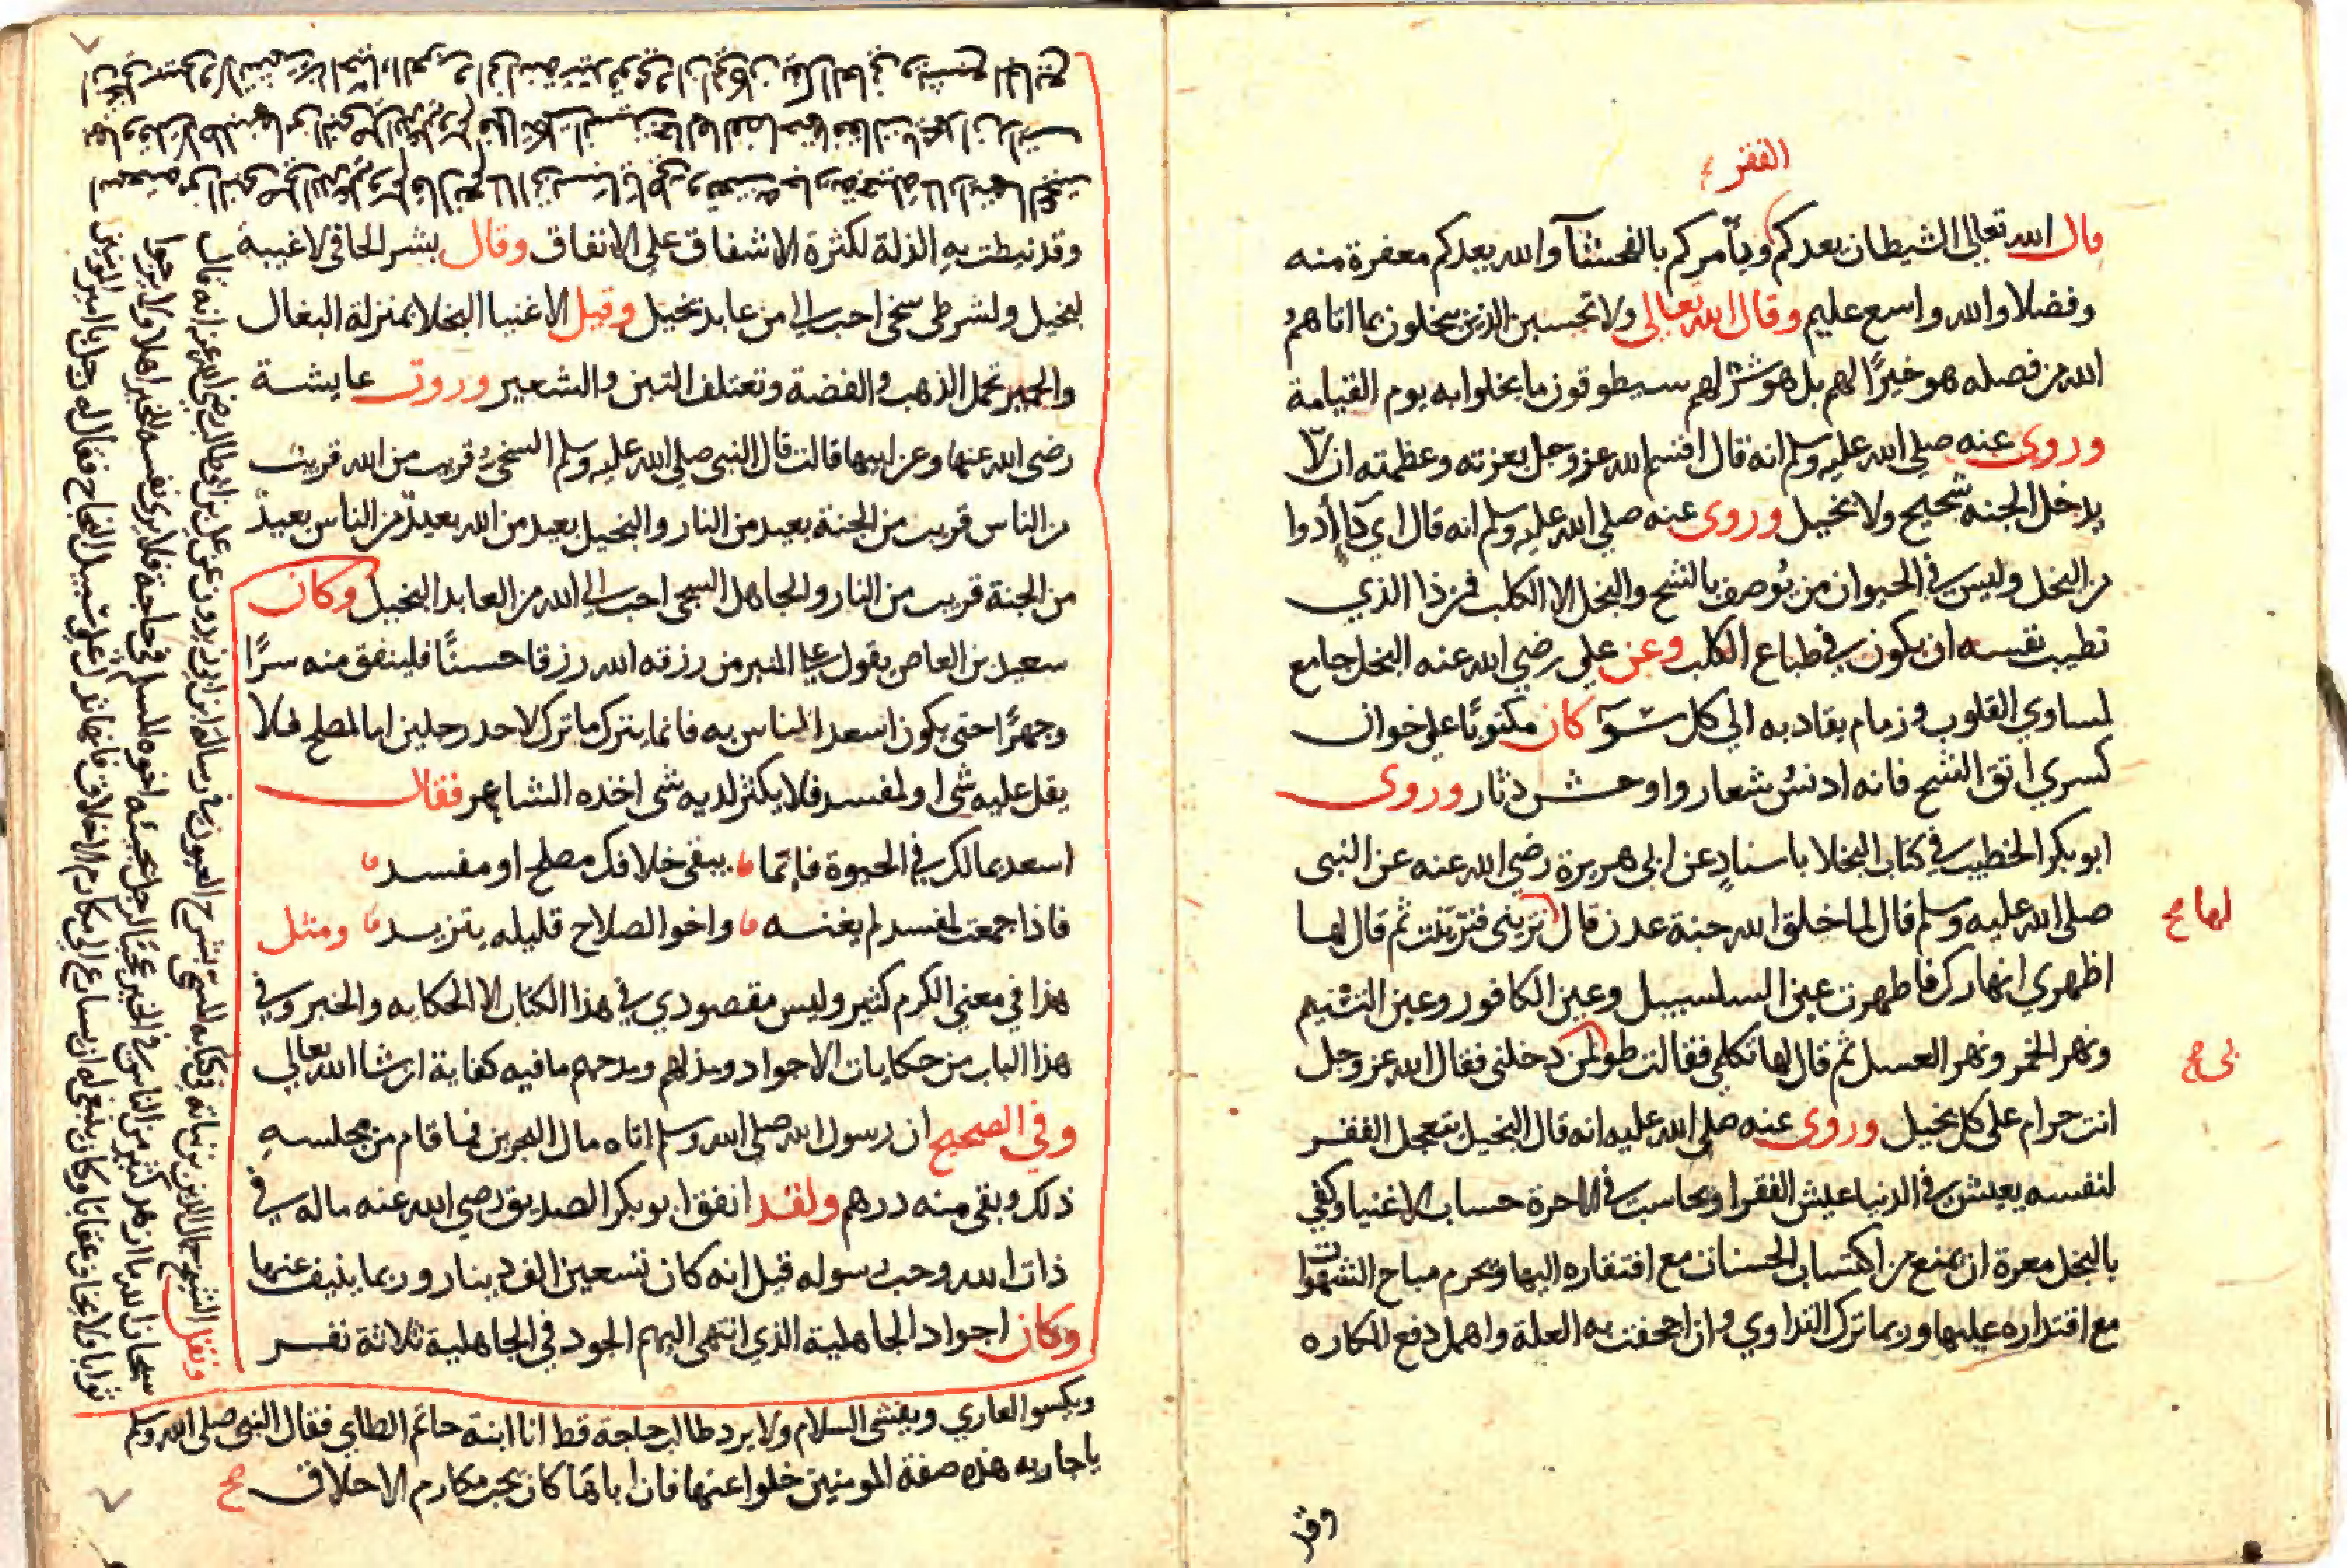 الفقر
قال الله تعالى الشيطان يعدكم ويأمركم بالفحشآ والله يعدكم مغفرة منه
وفضلا والله واسع عليم وقال الله تعالى ولا تحسبن الذين يبخلون بما اتاهم
الله من فضله هو خيرًا لهم بل هو شرّ لهم سيطوقون ما بخلوا به يوم القيامة
وروى عنه صلى الله عليه وسلم انه قال اقسم الله عز وجل بعزته وعظمته ان لا
يدخل الجنه شحيح ولا بخيل وروى عنه صلى الله عليه وسلم انه قال اي دآء أدوا
من البخل وليس في الحيوان من يُوصف بالشح والبخل الا الكلب فمن ذا الذي
تطيب نفسه ان يكون في طباع الكلب وعن علي رضي الله عنه البخل جامع
لمساوي القلوب وزمام يقاد به الي كل سوٓء كان مكتوبًا على خوان
كسري اتق الشح فانه ادنس شعار واوحش دثار وروى
ابو بكر الخطيب في كتاب البخلا باسنادٍ عن ابى هريرة رضي الله عنه عن النبى
صلى الله عليه وسلم قال لما خلق الله جنة عدن قال تزينى فتزينت ثم قال لها
لها صح
اظهري انهارك فاظهرت عين السلسبيل وعين الكافور وعين التسنيم
ونهر الخمر ونهر العسل ثم قال لها تكلمي فقالت طو لمن دخلنى فقال الله عز وجل
بى صح
انت حرام على كل بخيل وروى عنه صلى الله عليه انه قال البخيل يتعجل الفقر
لنفسه يعيش في الدنيا عيش الفقرا ويحاسب في الاخرة حساب الاغنيا وكفي
بالبخل معرة ان يمنع من اكتساب الحسنات مع افتقاره اليها ويحرم مباح الشهوات
مع اقتداره عليها وربما ترك التداوي وان اجحفت به العلة واهمل دفع المكاره
وقد
وقد نيطت به الذلة لكثرة الاشفاق على الانفاق وقال بشر الحافي لا غيبة
لبخيل ولشرطى سخي احب الي من عابد بخيل وقيل الاغنيا البخلا بمنزلة البغال
والحمير تحمل الذهب والفضة وتعتلف التبن والشعير وروت عايشة
رضى الله عنها وعن ابيها قالت قال النبى صلى الله عليه وسلم السخىّ قريب من الله قريب
من الناس قريب من الجنة بعيد من النار والبخيل بعيد من الله بعيدٌ من الناس بعيدٌ
من الجنة قريب من النار والجاهل السخى احب الي الله من العابد البخيل وكان
سعيد بن العاص يقول على المنبر من رزقه الله رزقا حسنًا فلينفق منه سرًا
وجهرًا حتى يكون اسعد الناس به فانما يترك ما ترك لاحد رجلين اما لمصلح فلا
يقل عليه شى او لمفسد فلا يكثر لديه شى اخذه الشاعر فقال
اسعد بمالك في الحيوة فانّما يبقى خلافك مصلح او مفسد
فاذا جمعت لمفسد لم يغنه واخو الصلاح قليله يتزيد ومثل
هذا في معنى الكرم كثير وليس مقصودي في هذا الكتاب الا الحكايه والخبر وفي
هذا الباب من حكايات الاجواد وبذلهم ومدحهم ما فيه كفاية ان شا الله تعالى
وفي الصحيح ان رسول الله صلى الله وسلم اتاه مال البحرين فما قام من مجلسه
ذلك وبقى منه درهم ولقد انفق ابو بكر الصديق رضي الله عنه ماله في
ذات الله وحب رسوله قيل انه كان تسعين الف دينار وربما ينيف عنها
وكان اجواد الجاهلية الذي انتهى اليهم الجود في الجاهلية ثلاثة نفر
ونقل الشيخ جمال الدين بن نباته في كتابه المسمى بشرح العيون في رسالة ابن زيدون عن على بن ابى طالب رضي الله عنه انه قال
سبحان الله ما ازهد كثير من الناس في الخير عجبًا لرجل يجيئه اخوه المسلم في حاجة فلا يرى نفسه للخير اهلا ولا يرجوا
ثوابا ولا يخاف عقابا وكان ينبغى له ان يسارع الى مكارم الاخلاق فانها تدل على سبيل النجاح فقال له رجل يا امير المومنين
ويكسوا العاري ويفشى السلام ولا يرد طالب حاجة قط انا ابنة حاتم الطاي فقال النبى صلى الله وسلم
يا جاريه هذه صفة المومنين خلوا عنها فان اباها كان يحب مكارم الاخلاق صح